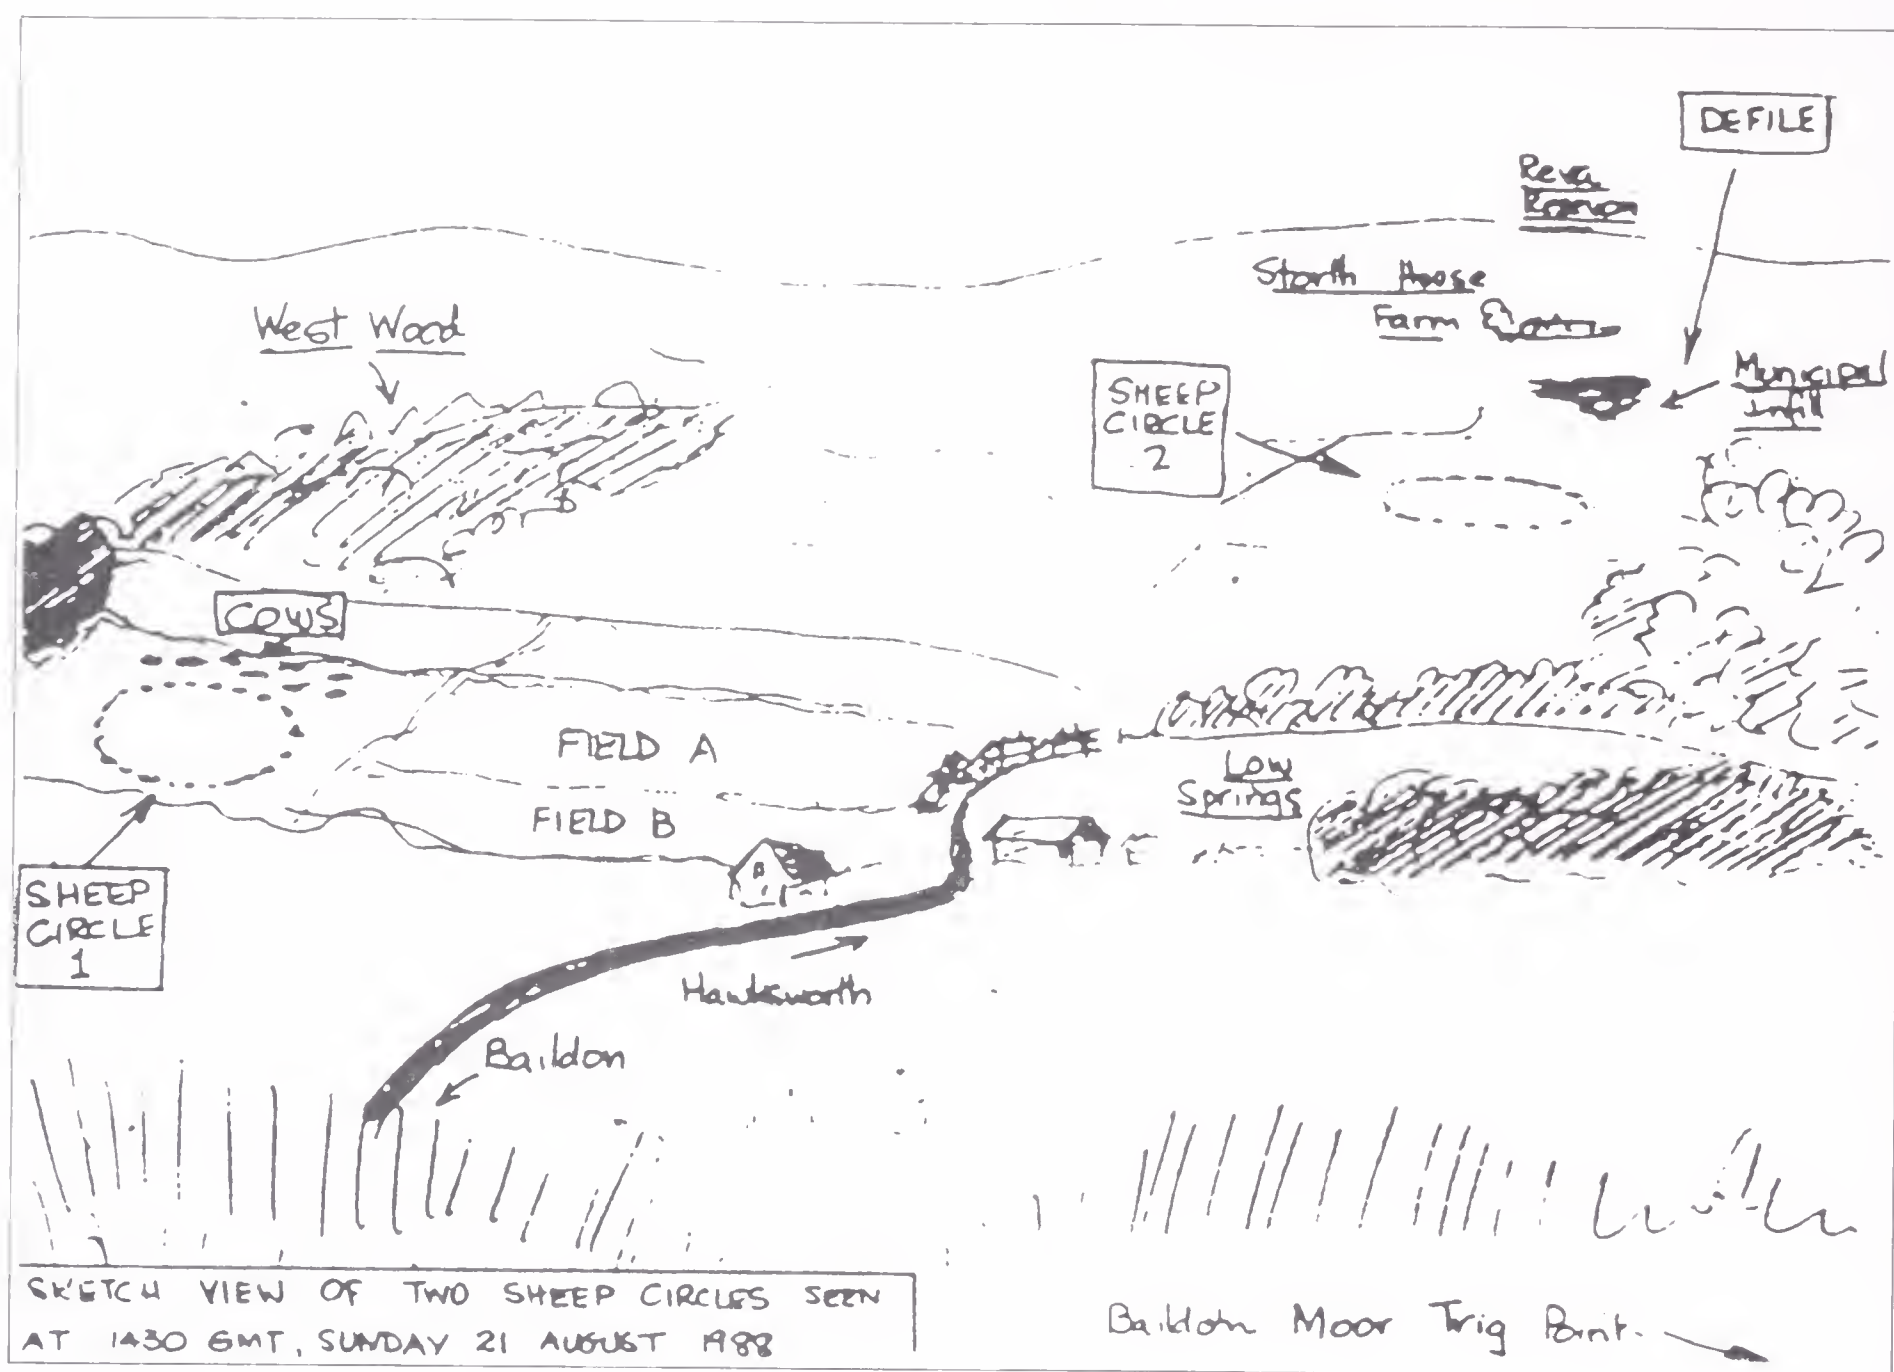 DEFILE
Reva
Storth House
Farm
West Wood
Municipal
Infill
SHEEP
CIRCLE
2
COWS
FIELD A
FIELD B
Low
Springs
SHEEP
CIRCLE
1
Hawksworth
Baildon
SKETCH VIEW OF TWO SHEEP CIRCLES SEEN
AT 1430 GMT, SUNDAY 21 AUGUST 1988
Baildon Moor Trig Point.